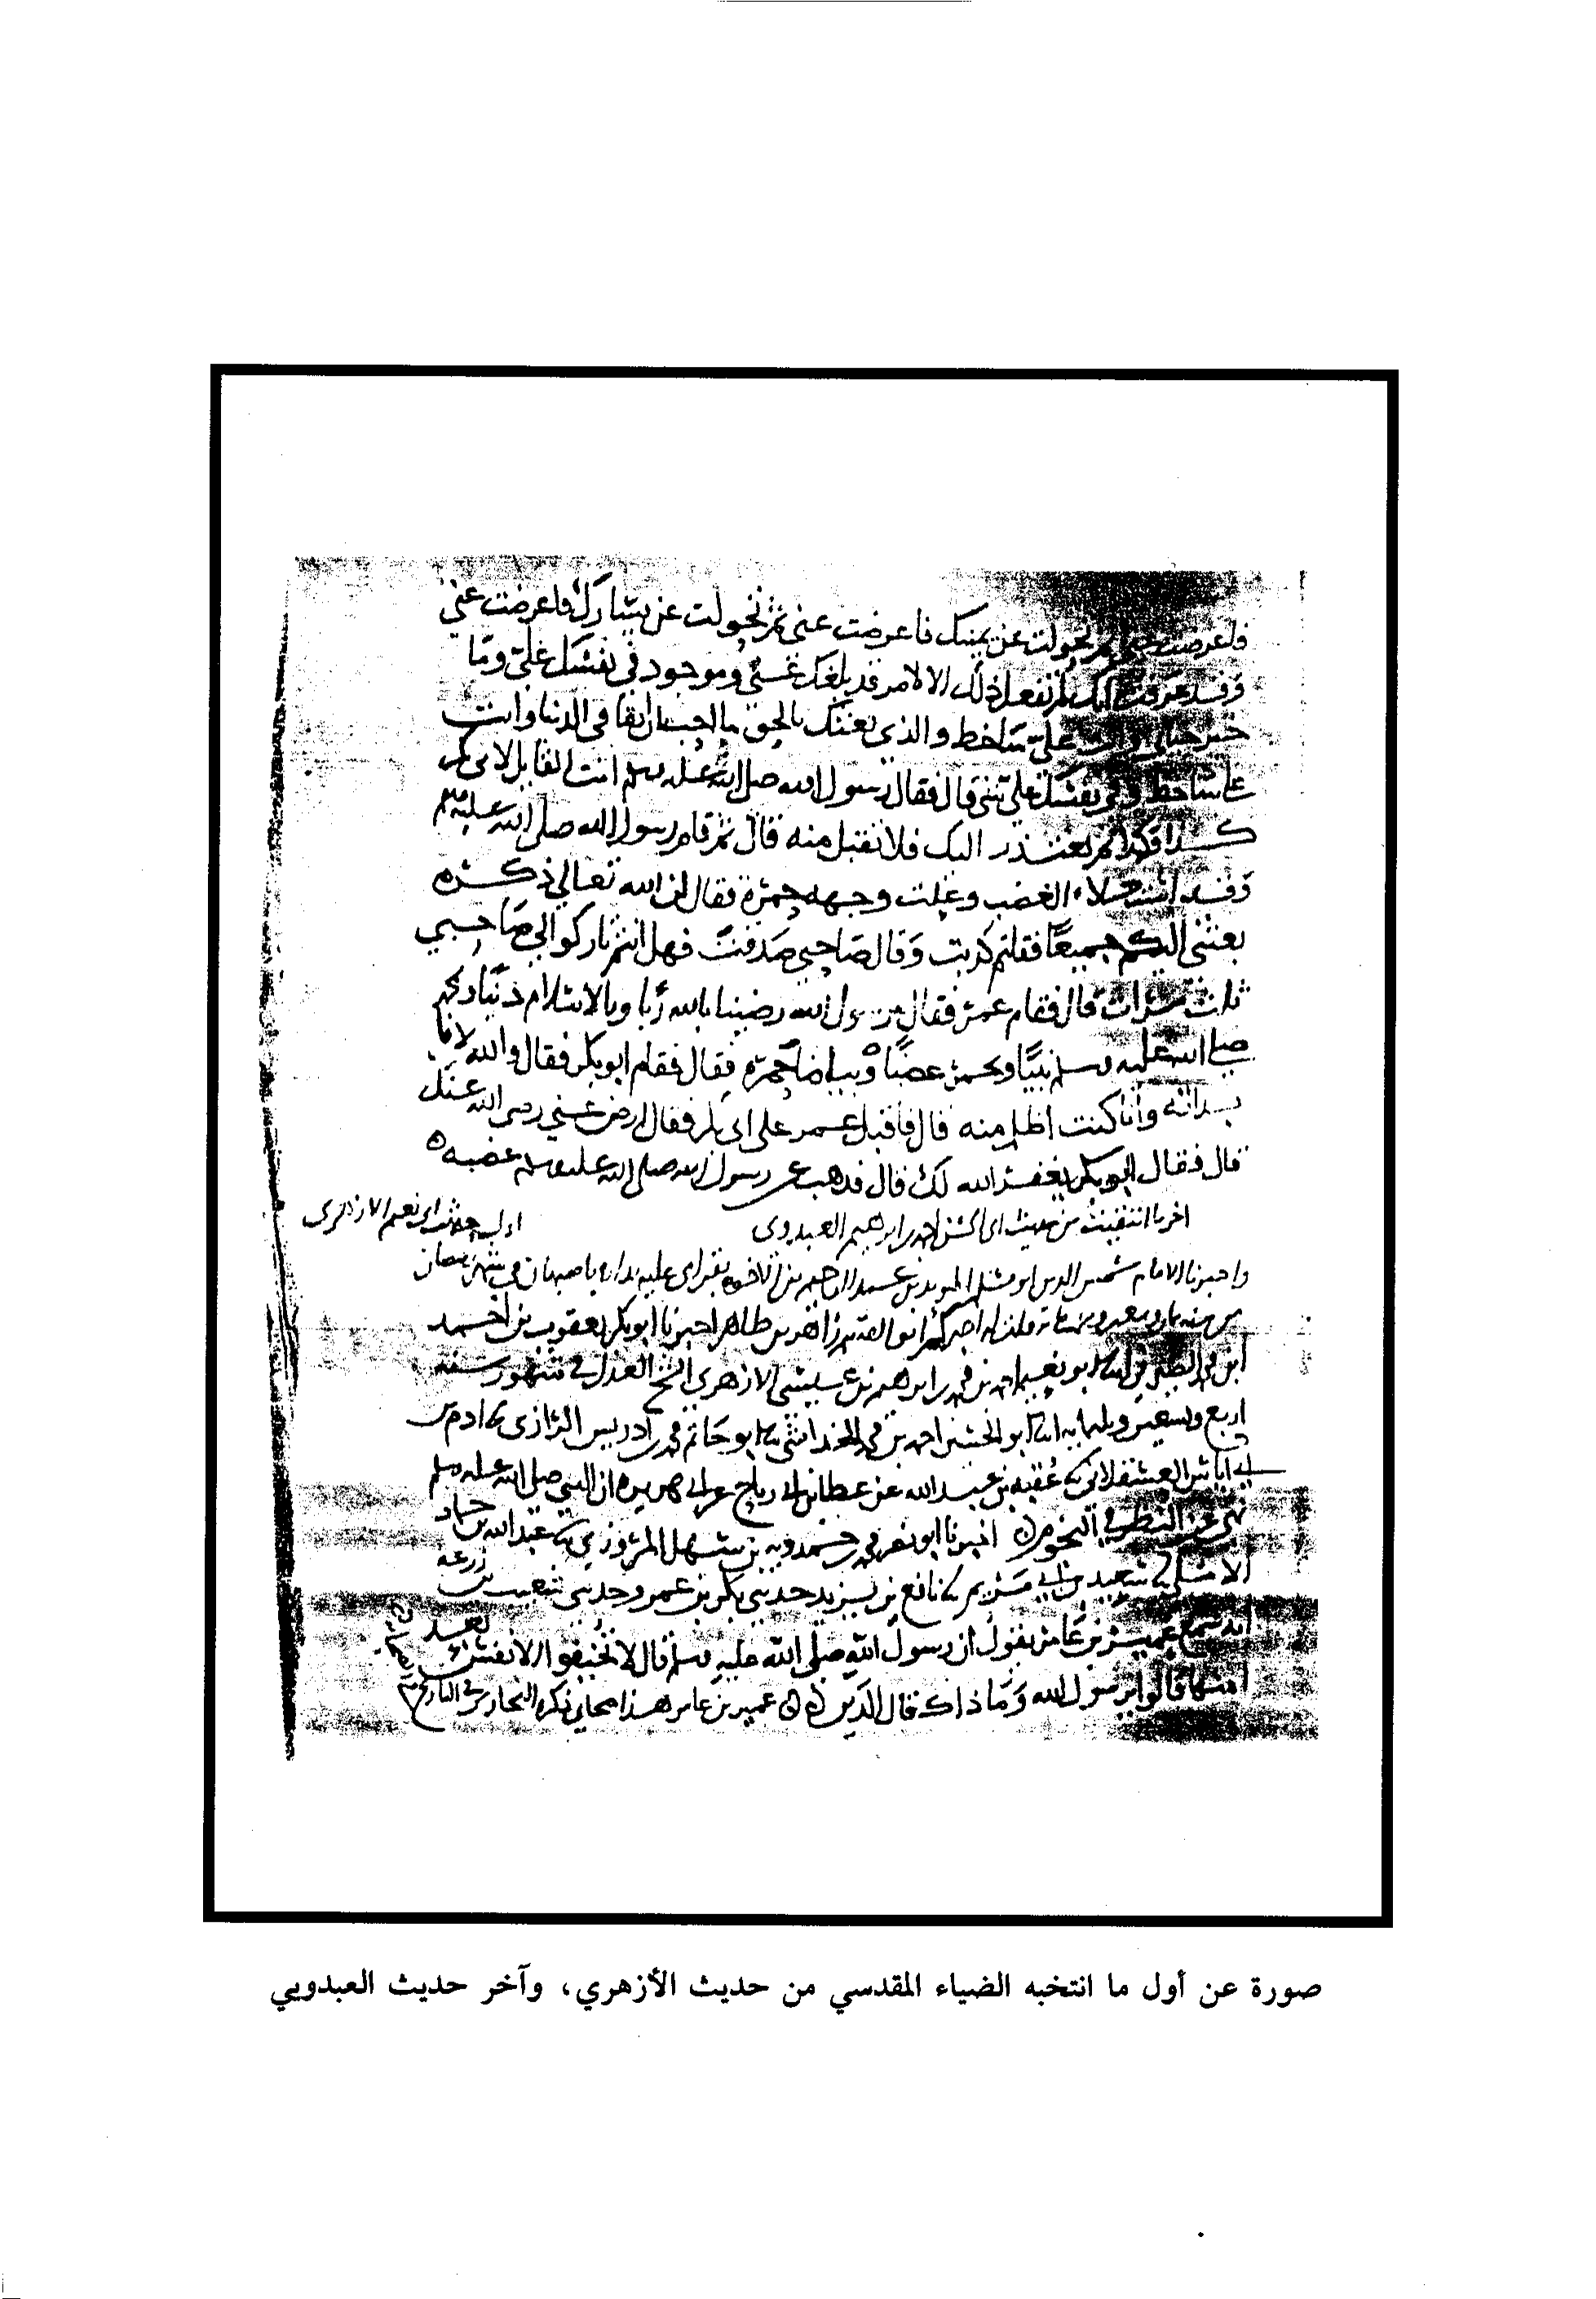 فاعرضت عني ثم تحولت عن يمينك فاعرضت عني ثم تحولت عن يسارك فاعرضت عني
وقد عرفت انك لم تفعل ذلك الا لامر قد بلغك عني وموجود في نفسك علي وما
خير حياتي وانت علي ساخط والذي بعثك بالحق ما احب ان ابقا في الدنيا وانت
علي ساخط وفي نفسك علي شي قال فقال رسول الله صلى الله عليه وسلم انت القايل لابي بكر
كذا وكذا ثم يعتذر اليك فلا تقبل منه قال ثم قام رسول الله صلى الله عليه وسلم
وقد الغضب وعلت وجهه حمرة فقال ان الله تعالى ذكره
بعثني اليكم جميعا فقلتم كذبت وقال صاحبي صدقت فهل انتم تاركوا لي صاحبي
ثلث مرات قال فقام عمر فقال يرسول الله رضينا بالله ربا وبالاسلام دينا وبمحمد
صلى الله عليه وسلم نبيا فقال فقام ابو بكر فقال والله لانا
بداته وانا كنت اظلم منه قال فاقبل عمر على ابي بكر فقال ارض عني رضي الله عنك
قال فقال ابو بكر يغفر الله لك قال فذهب عن رسول الله صلى الله عليه وسلم غضبه
اخر ما انتقيت من حديث ابي احمد بن ابرهيم العبدوي
اول حديث ابي نعيم الازهري
واخبرنا الامام شمس الدين ابو مسلم المويد بن عبد الرحيم بن الاخوة بقراتي عليه بداره باصبهان في شهر رمضان
طاهر اخبرنا ابو بكر يعقوب بن احمد
ابن محمد الصيرفي ابو نعيم احمد بن محمد بن ابرهيم بن عيسى الازهري الشيخ العدل في شهور سنة
اربع وتسعين وثلثمايه ابو الحسن احمد بن محمد ابو حاتم محمد بن ادريس الرازي ادم بن
ابي اياس العسقلاني عقبة بن عبد الله عن عطا بن ابي رباح عن ابي هريره ان النبي صلى الله عليه وسلم
نهى عن النظر في النجوم اخبرنا ابو نصر محمد بن حمدويه بن سهل المروزي عبد الله بن حماد
الاملي سعيد بن ابي مريم نافع بن يزيد حدثني بكر بن عمرو حدثني شعيب بن زرعه
انه سمع عمير بن عامر يقول ان رسول الله صلى الله عليه وسلم قال لا تخيفوا الانفس بعد
امنها قالوا يرسول الله وما ذاك قال الدين عمير بن عامر هذا صحابي ذكره البخاري في التاريخ
صورة عن أول ما انتخبه الضياء المقدسي من حديث الأزهري، وآخر حديث العبدويي